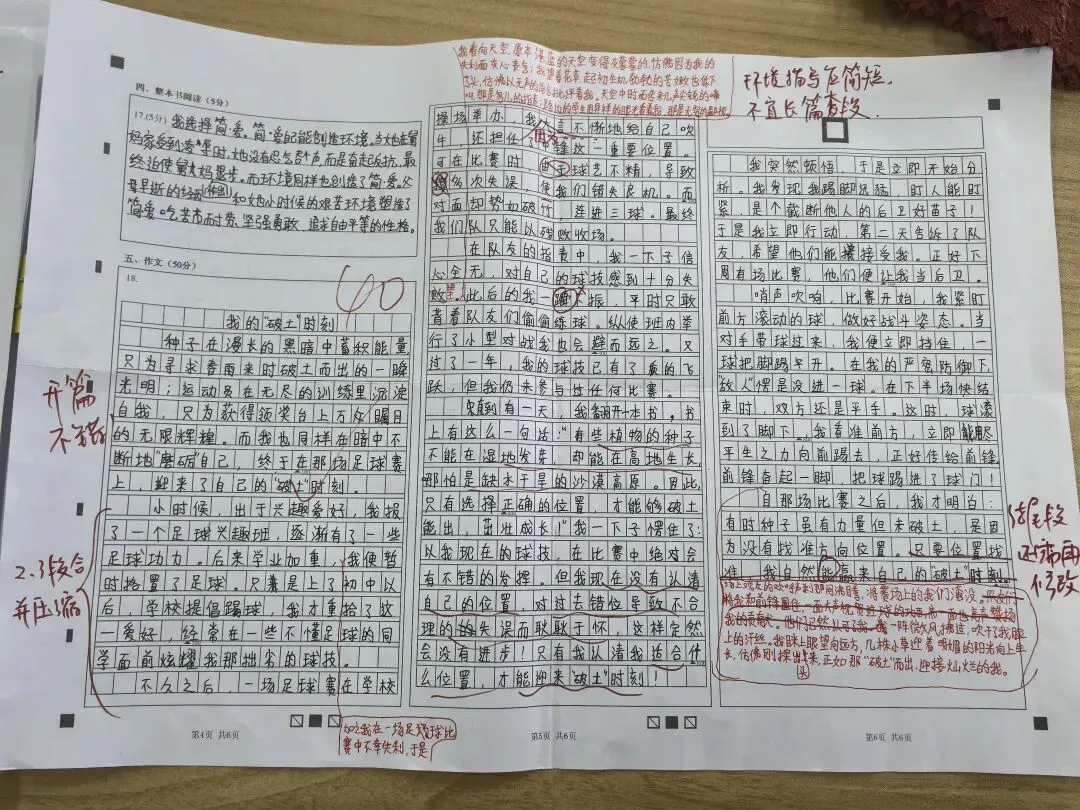 四、整本书阅读（5分）
17.(5分)我选择简·爱。简·爱既能创造环境。当她在舅
妈家受到
等时，她没有忍气吞声，而是奋起反抗，最
终迫使舅
而环境同样也创造了简·爱。父
母早逝的经历(作出)和她小时候的艰苦环境塑造了
简·爱吃苦而耐劳，坚强勇敢，追求自由平等的性格。
五、作文（50分）
18.
40
我的"破土"时刻
种子在漫长的黑暗中蓄积能量，
只为寻求春雨来时破土而出的一瞬
光明；运动员在无尽的训练里沉淀
自我，只为获得领奖台上万众瞩目
的无限辉煌。而我也同样在暗中不
断地"磨砺"自己，终于在那场足球赛
上，迎来了自己的"破土"时刻。
小时候，出于兴趣爱好，我报
了一个足球兴趣班，逐渐有了一些
足球功力。后来学业加重，我便暂
时搭置了足球。只兼是上了初中以
后，学校提倡踢球，我才重拾了这
一爱好，经常在一些不懂足球的同
学面前炫耀我那拙劣的球技。
不久之后，一场足球赛在学校
开篇
不错
2.3段合
并压缩
加之我在一场足球比
赛中不幸失利，于是
第4页 共6页
我看向天空，原本湛蓝的天空变得灰蒙蒙的，仿佛因为我的
失利而灰心丧气；我望着花草，起初生机勃勃的芳草也低下
了头，仿佛以无声的
批评着我。天空中时而传来几声尖锐的鸣
叫，那是鸟儿的指责；
的学生用异样的眼光看着我，那是无声的
环境描写在简短，
不宜长篇章段
操场举办，我
言不惭地给自己吹
牛，还担任了
锋这一重要位置。
可在比赛时，由于球艺不精，导致
我多次失误，使我们错失良机。而
对面却势如破竹，连进三球。最终
我们队只能以残败收场。
在队友的指责中，我一下子信
心全无，对自己的球技感到十分失
败望。此后的我一蹶不振，平时只敢
背着队友们偷偷练球。纵使班内举
行了小型对战我也会避而远之。又
过了一年，我的球技已有了质的飞
跃，但我仍未参与过任何比赛。
直到有一天，我翻开一本书。书
上有这么一句话："有些植物的种子
不能在湿地发芽，却能在高地生长，
哪怕是缺水干旱的沙漠高原。因此，
只有选择正确的位置，才能够破土
能出，茁壮成长！"我一下子愣住了：
以我现在的球技，在比赛中绝对会
有不错的发挥。但我现在没有认清
自己的位置，对过去错位导致不合
理的失误而耿耿于怀，这样定然
会没有进步！只有我认清我适合什
么位置，才能迎来"破土"时刻！
第5页 共6页
我突然顿悟，于是立即开始分
析。我发现我踢脚远猛，盯人能盯
紧，是个截断他人的后卫好苗子！
于是我立即行动，第二天告诉了队
友，希望他们能接受我。正好下
周有场比赛，他们便让我当后卫。
哨声吹响，比赛开始，我紧盯
前方滚动的球，做好战斗姿态。当
对手带球过来，我便立即挡住，一
球把脚踢半开。在我的严密防御下，
"敌人"愣是没进一球。在下半场快结
束时，双方还是平手。这时，球滚
到了脚下，我看准前方，立即能用尽
平生之力向前踢去，正好传给前锋，
前锋奋起一脚，把球踢进了球门！
自那场比赛之后，我才明白：
有时种子虽有力量但未破土，是因
为没有找准方向位置。只要位置找
准，我自然能赢来自己的"破土"时刻。
结尾段
还需再
修改
场上观众的欢呼
刹那间沸腾，将赛场上的我们淹没。
将我和前锋围住，一面大声祝贺
球的
而一面也
我的贡献。他们已然认可我。一阵信风
拂过，吹干了我脸
上的汗丝。我眯上眼望向远方，几株小草迎着明媚的阳光向上生
长，仿佛刚探出头来，正如那"破土"而出，迎接灿烂的我。
第6页 共6页